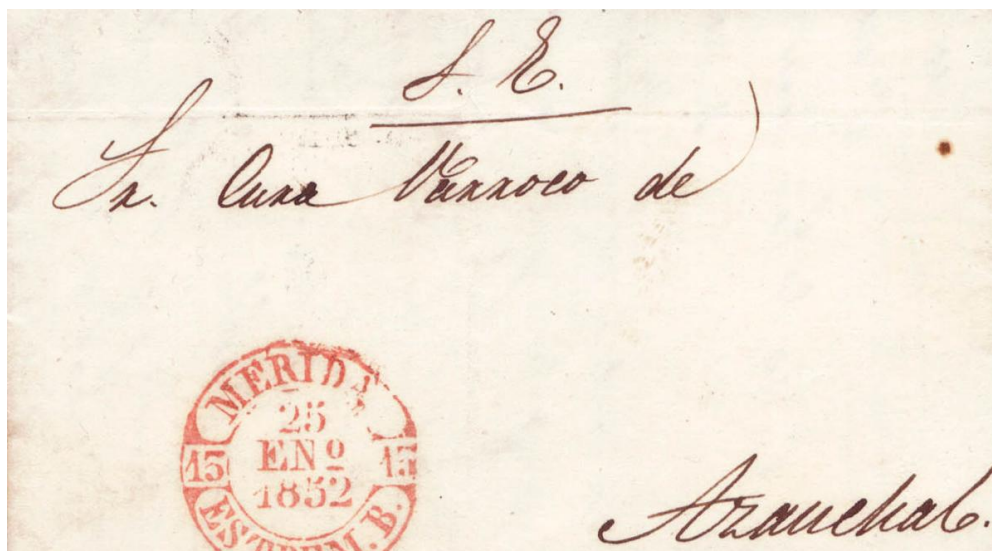 S. E.
Sr. Cura Párroco de
MERIDA
25
ENº
1852
15 15
ESTREM. B.
Azauchal.